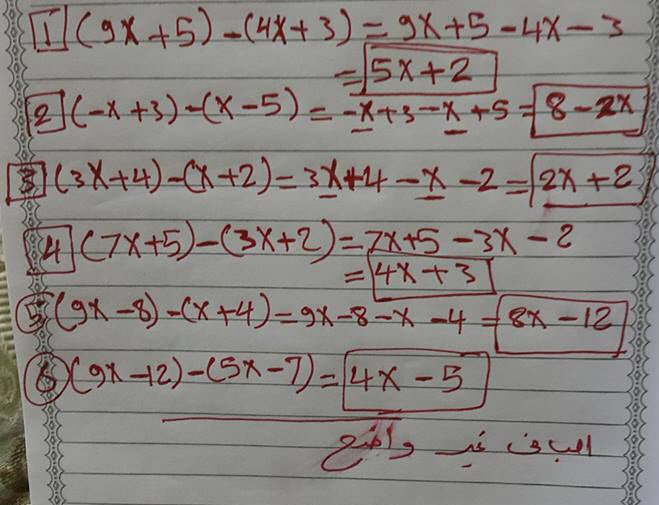 1 (9x+5)-(4x+3) = 9x+5-4x-3
= 5x+2
2 (-x+3)-(x-5) = -x+3-x+5 = 8-2x
3 (3x+4)-(x+2) = 3x+4-x-2 = 2x+2
4 (7x+5)-(3x+2) = 7x+5-3x-2
= 4x+3
5 (9x-8)-(x+4) = 9x-8-x-4 = 8x-12
6 (9x-12)-(5x-7) = 4x-5
غير واضح